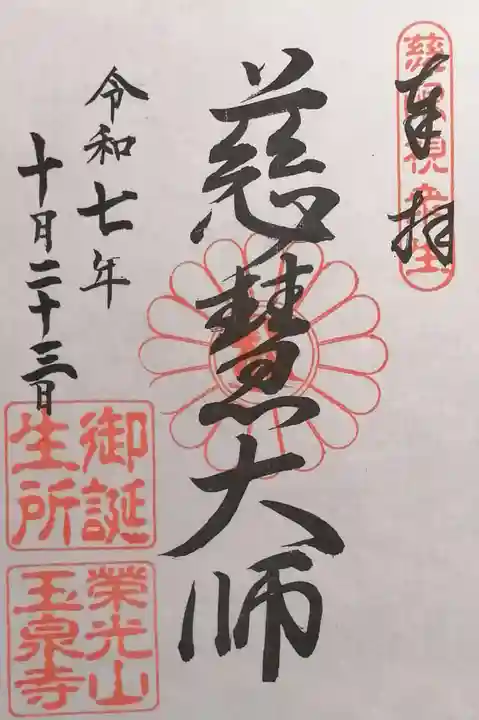 奉拝
慈眼視衆生
慈慧大師
令和七年
十月二十三日
御誕
生所
榮光山
玉泉寺